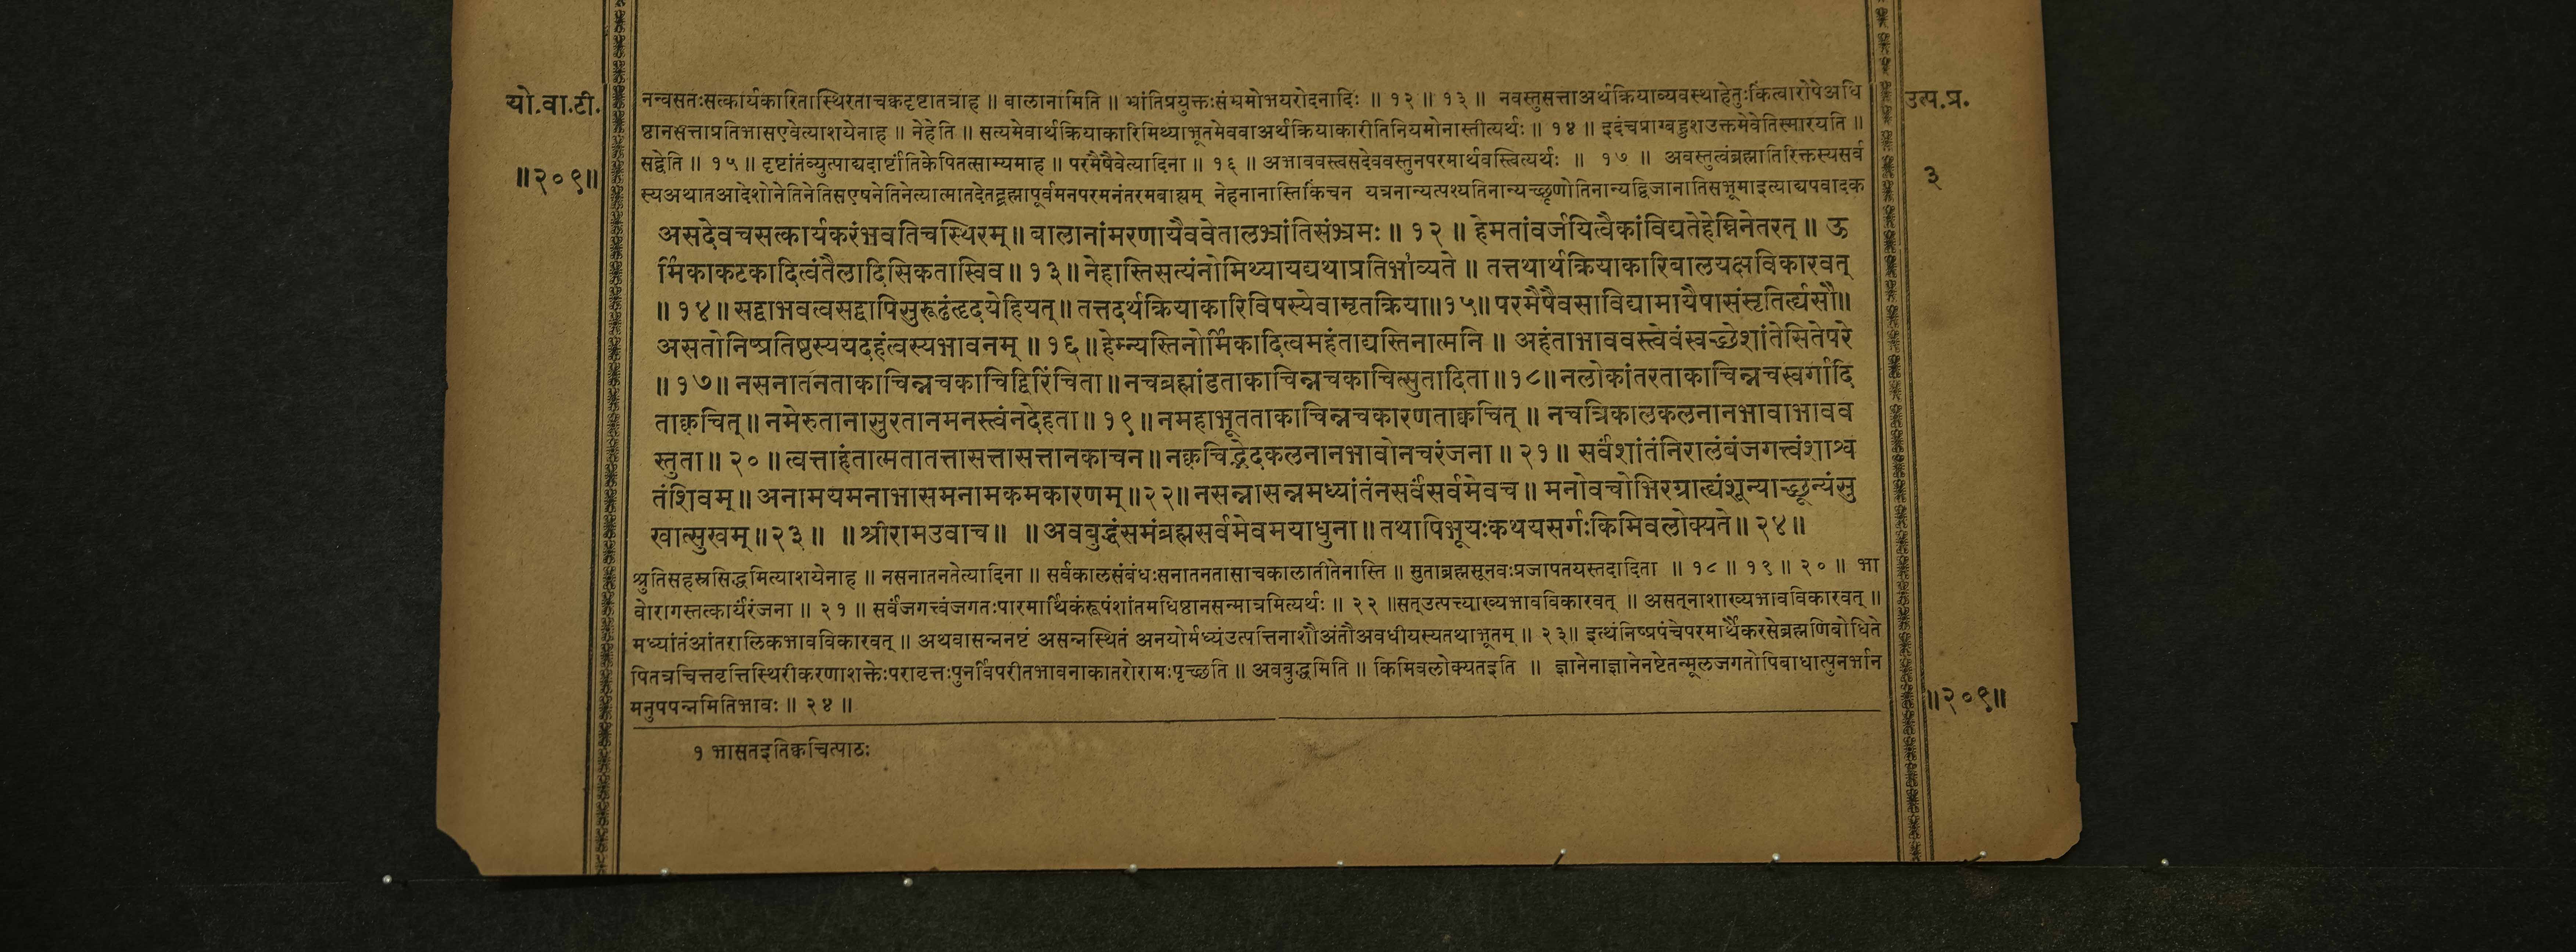 यो.वा.टी.
॥२०९॥
उत्प.प्र.
३
नन्वसतःसत्कार्यकारितास्थिरताचक्वदृष्टातत्राह ॥ बालानामिति ॥ भ्रांतिप्रयुक्तःसंभ्रमोभयरोदनादिः ॥ १२ ॥ १३ ॥ नवस्तुसत्ताअर्थक्रियाव्यवस्थाहेतुःकिंत्वारोपेअधि
ष्ठानसत्ताप्रतिभासएवेत्याशयेनाह ॥ नेहेति ॥ सत्यमेवार्थक्रियाकारिमिथ्याभूतमेववाअर्थक्रियाकारीतिनियमोनास्तीत्यर्थः ॥ १४ ॥ इदंचप्राग्बहुशउक्तमेवेतिस्मारयति ॥
सद्वेति ॥ १५ ॥ दृष्टांतंव्युत्पाद्यदार्ष्टांतिकेपितत्साम्यमाह ॥ परमैषैवेत्यादिना ॥ १६ ॥ अभाववस्त्वसदेववस्तुनपरमार्थवस्त्वित्यर्थः ॥ १७ ॥ अवस्तुत्वंब्रह्मातिरिक्तस्यसर्व
स्यअथातआदेशोनेतिनेतिसएषनेतिनेत्यात्मातदेतद्ब्रह्मापूर्वमनपरमनंतरमबाह्यम् नेहनानास्तिकिंचन यत्रनान्यत्पश्यतिनान्यच्छृणोतिनान्यद्विजानातिसभूमाइत्याद्यपवादक
असदेवचसत्कार्यकरंभवतिचस्थिरम्॥ बालानांमरणायैववेतालभ्रांतिसंभ्रमः॥ १२ ॥ हेमतांवर्जयित्वैकांविद्यतेहेम्निनेतरत् ॥ ऊ
र्मिकाकटकादित्वंतैलादिसिकतास्विव॥ १३॥ नेहास्तिसत्यंनोमिथ्यायद्यथाप्रतिभा१व्यते ॥ तत्तथार्थक्रियाकारिबालयक्षविकारवत्
॥ १४॥ सद्वाभवत्वसद्वापिसुरूढंहृदयेहियत्॥ तत्तदर्थक्रियाकारिविषस्येवामृतक्रिया॥१५॥ परमैषैवसाविद्यामायैषासंसृतिर्ह्यसौ॥
असतोनिष्प्रतिष्ठस्ययदहंत्वस्यभावनम् ॥ १६॥ हेम्न्यस्तिनोर्मिकादित्वमहंताद्यस्तिनात्मनि ॥ अहंताभाववस्त्वेवंस्वच्छेशांतेसितेपरे
॥ १७॥ नसनातनताकाचिन्नचकाचिद्विरिंचिता॥ नचब्रह्मांडताकाचिन्नचकाचित्सुतादिता॥१८॥ नलोकांतरताकाचिन्नचस्वर्गादि
ताक्वचित्॥ नमेरुतानासुरतानमनस्त्वंनदेहता॥ १९॥ नमहाभूतताकाचिन्नचकारणताक्वचित् ॥ नचत्रिकालकलनानभावाभावव
स्तुता॥ २० ॥ त्वत्ताहंतात्मतातत्तासत्तासत्तानकाचन॥ नक्वचिद्भेदकलनानभावोनचरंजना॥ २१॥ सर्वंशांतंनिरालंबंजगत्त्वंशाश्व
तंशिवम्॥ अनामयमनाभासमनामकमकारणम्॥२२॥ नसन्नासन्नमध्यांतंनसर्वंसर्वमेवच॥ मनोवचोभिरग्राह्यंशून्याच्छून्यंसु
खात्सुखम्॥२३॥ ॥श्रीरामउवाच॥ ॥अवबुद्धंसमंब्रह्मसर्वमेवमयाधुना॥ तथापिभूयःकथयसर्गःकिमिवलोक्यते॥ २४॥
श्रुतिसहस्रसिद्धमित्याशयेनाह ॥ नसनातनतेत्यादिना ॥ सर्वकालसंबंधःसनातनतासाचकालातीतेनास्ति ॥ सुताब्रह्मसूनवःप्रजापतयस्तदादिता ॥ १८ ॥ १९ ॥ २० ॥ भा
वोरागस्तत्कार्यंरंजना ॥ २१ ॥ सर्वंजगत्त्वंजगतःपारमार्थिकंरूपंशांतमधिष्ठानसन्मात्रमित्यर्थः ॥ २२ ॥सत्उत्पत्त्याख्यभावविकारवत् ॥ असत्नाशाख्यभावविकारवत् ॥
मध्यांतंआंतरालिकभावविकारवत् ॥ अथवासन्ननष्टं असन्नस्थितं अनयोर्मध्यंउत्पत्तिनाशौअंतौअवधीयस्यतथाभूतम् ॥ २३॥ इत्थंनिष्प्रपंचेपरमार्थैकरसेब्रह्मणिबोधिते
पितत्रचित्तवृत्तिस्थिरीकरणाशक्तेःपरावृत्तःपुनर्विपरीतभावनाकातरोरामःपृच्छति ॥ अवबुद्धमिति ॥ किमिवलोक्यतइति ॥ ज्ञानेनाज्ञानेनष्टेतन्मूलजगतोपिबाधात्पुनर्भान
मनुपपन्नमितिभावः ॥ २४ ॥
॥२०९॥
१ भासतइतिक्वचित्पाठः